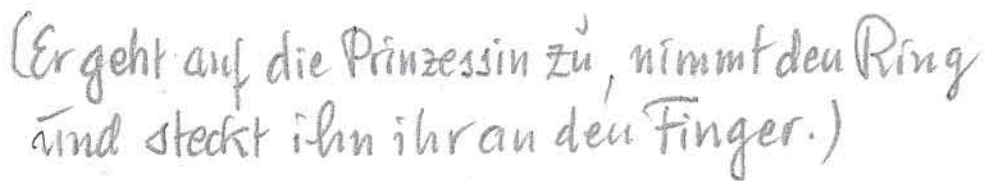 (Er geht auf die Prinzessin zu, nimmt den Ring
und steckt ihn ihr an den Finger.)